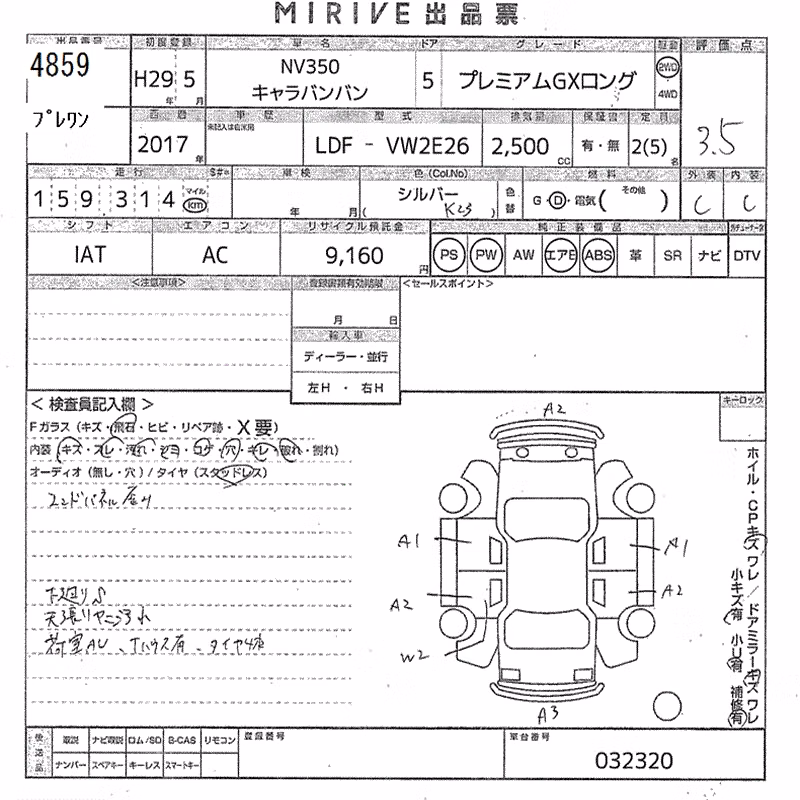 MIRIVE出品票
出品番号 初度登録 車名 ドア グレード 駆動 評価点
4859 H29 5 NV350 キャラバンバン 5 プレミアムGXロング 2WD 4WD
年 月
プレワン 西暦 車歴 型式 排気量 保証書 定員 3.5
未記入は自家用
2017年 LDF - VW2E26 2,500cc 有・無 2(5)名
走行 車検 色(Col.No) 燃料 外装 内装
159,314 マイル km 年 月 シルバー (K23) 色替 G・D・電気(その他) C C
シフト エアコン リサイクル預託金 純正装備品
IAT AC 9,160円 PS PW AW エアB ABS 革 SR ナビ DTV
<注意事項> 登録書類有効期限 <セールスポイント>
月 日
輸入車
ディーラー・並行
左H ・ 右H
キーロック
< 検査員記入欄 >
Fガラス (キズ・飛石・ヒビ・リペア跡・X要)
内装 (キズ・スレ・汚れ・ヒヨ・コゲ・穴・キレ・破れ・割れ)
オーディオ (無し・穴) / タイヤ (スタッドレス)
エンドパネル
下廻りS
天張りヤニ汚れ
荷室AU、Tハウス有、タイヤ4本
A2
A1 A1
A2 A2
W2
A3
ホイル・CPキズ ワレ / ドアミラーキズ ワレ
小キズ有 小U有 補修有
後送品 取説 ナビ取説 ロム/SD B-CAS リモコン 登録番号 車台番号
ナンバー スペアキー キーレス スマートキー 032320